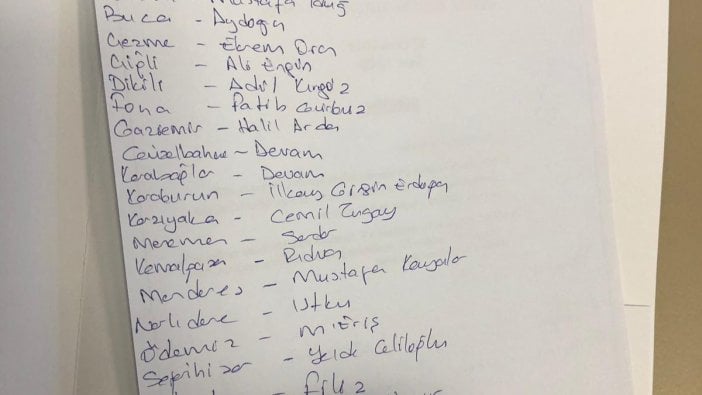 Mustafa
Buca - Aydoğan
Çeşme - Ekrem Oran
Çiğli - Ali Engin
Dikili - Adil Kırgöz
Foça - Fatih Gürbüz
Gaziemir - Halil Arda
Güzelbahçe - Devam
Karabağlar - Devam
Karaburun - İlkay Girgin Erdoğan
Karşıyaka - Cemil Tugay
Menemen - Serdar
Kemalpaşa - Rıdvan
Menderes - Mustafa Kayalar
Narlıdere - Utku
Ödemiş - M. Eriş
Seferihisar - Yelda Celiloğlu
- Filiz